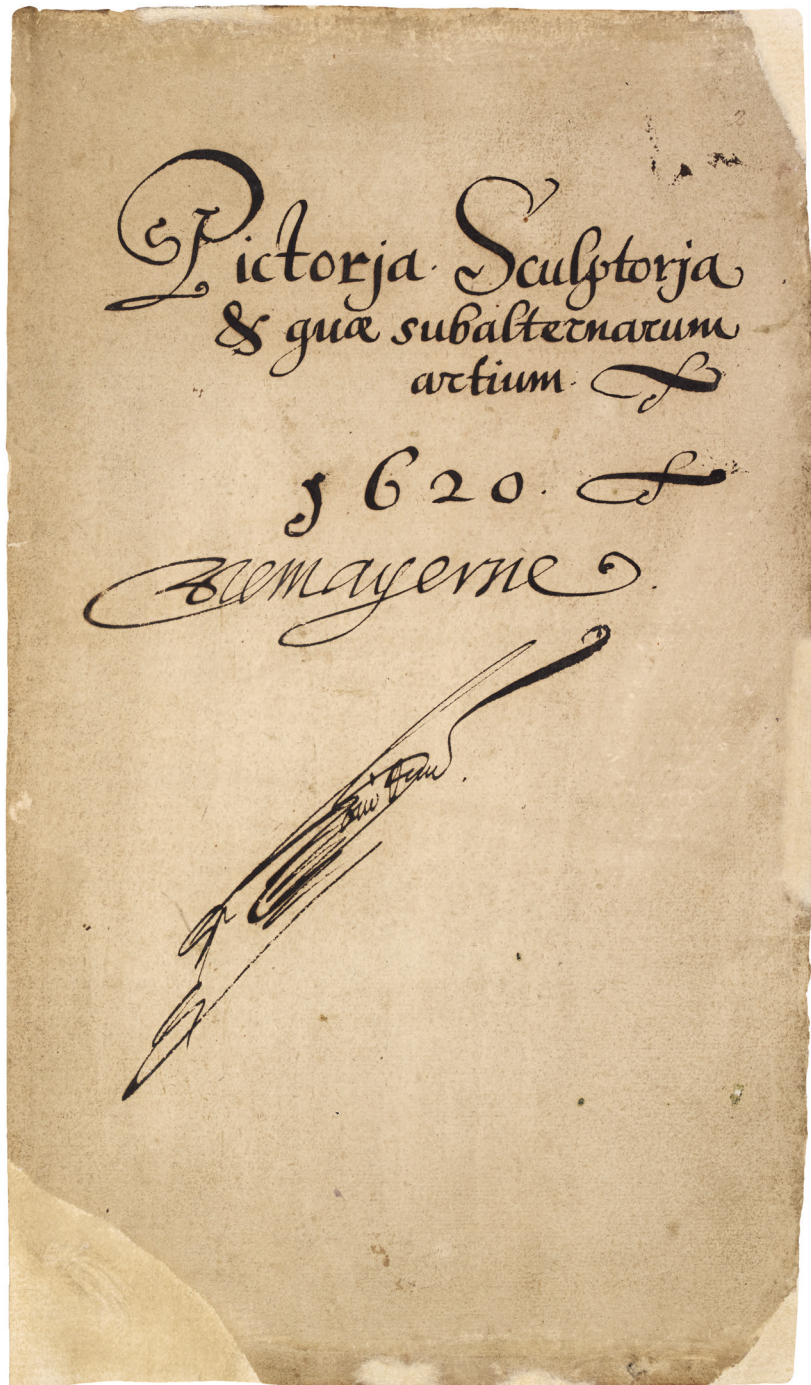 Pictorja Sculptorja
& quæ subalternarum
artium.
1620.
Demayerne.